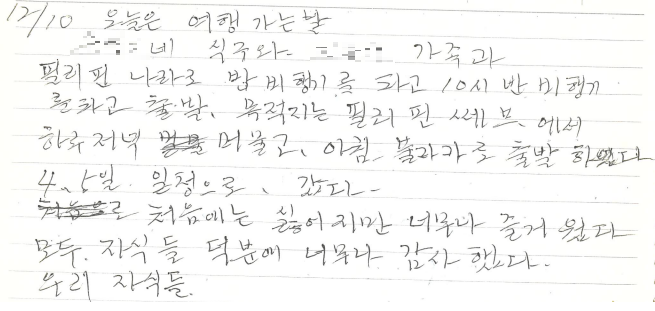 12/10 오늘은 여행 가는날
네 식주와 가족과
필리핀 나라로 밤비행기를 타고 10시 반 비행기
를타고 출발, 목적지는 필리핀 쎄브, 에서
하루저녁 머물고, 아침 볼라카로 출발 하였다
4, 5일 일정으로, 갔다-
처음에는 싫어지만 너무나 즐거웠다
모두, 자식들 덕분에 너무나 감사했다.
우리 자식들.